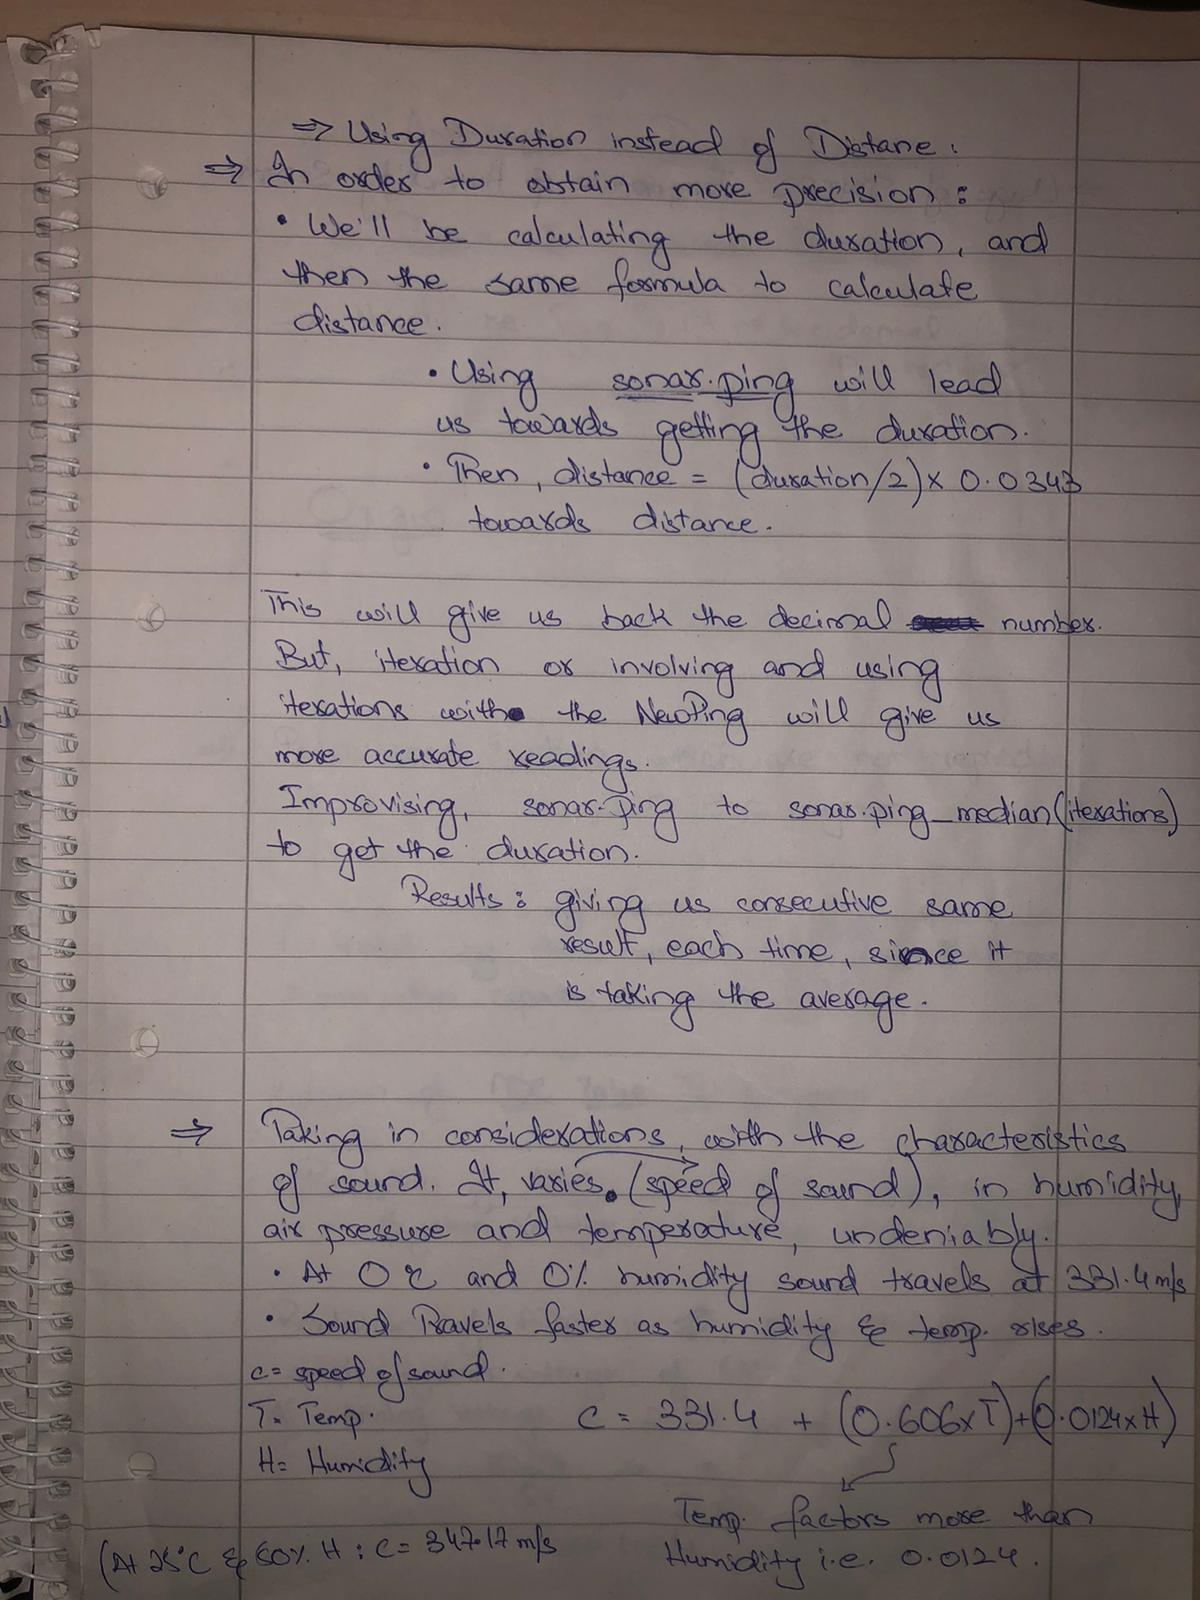 ⇒ Using Duration instead of Distane :
⇒ In order to obtain more precision :
• We'll be calculating the duration, and
then the same formula to calculate
distance.
• Using sonar.ping will lead
us towards getting the duration.
• Then, distance = (duration/2) x 0.0343
towards distance.
This will give us back the decimal number.
But, iteration or involving and using
iterations with the NewPing will give us
more accurate readings.
Improvising, sonar.ping to sonar.ping_median(iterations)
to get the duration.
Results : giving us consecutive same
result, each time, since it
is taking the average.
⇒ Taking in considerations, with the characteristics
of sound. It, varies. (speed of sound), in humidity,
air pressure and temperature, undeniably.
• At 0°C and 0% humidity sound travels at 331.4 m/s
• Sound Travels faster as humidity & temp. rises.
c = speed of sound.
T = Temp. C = 331.4 + (0.606 x T) + (0.0124 x H)
H = Humidity
Temp. factors more than
Humidity i.e. 0.0124.
(At 25°C & 50% H : C = 347.17 m/s